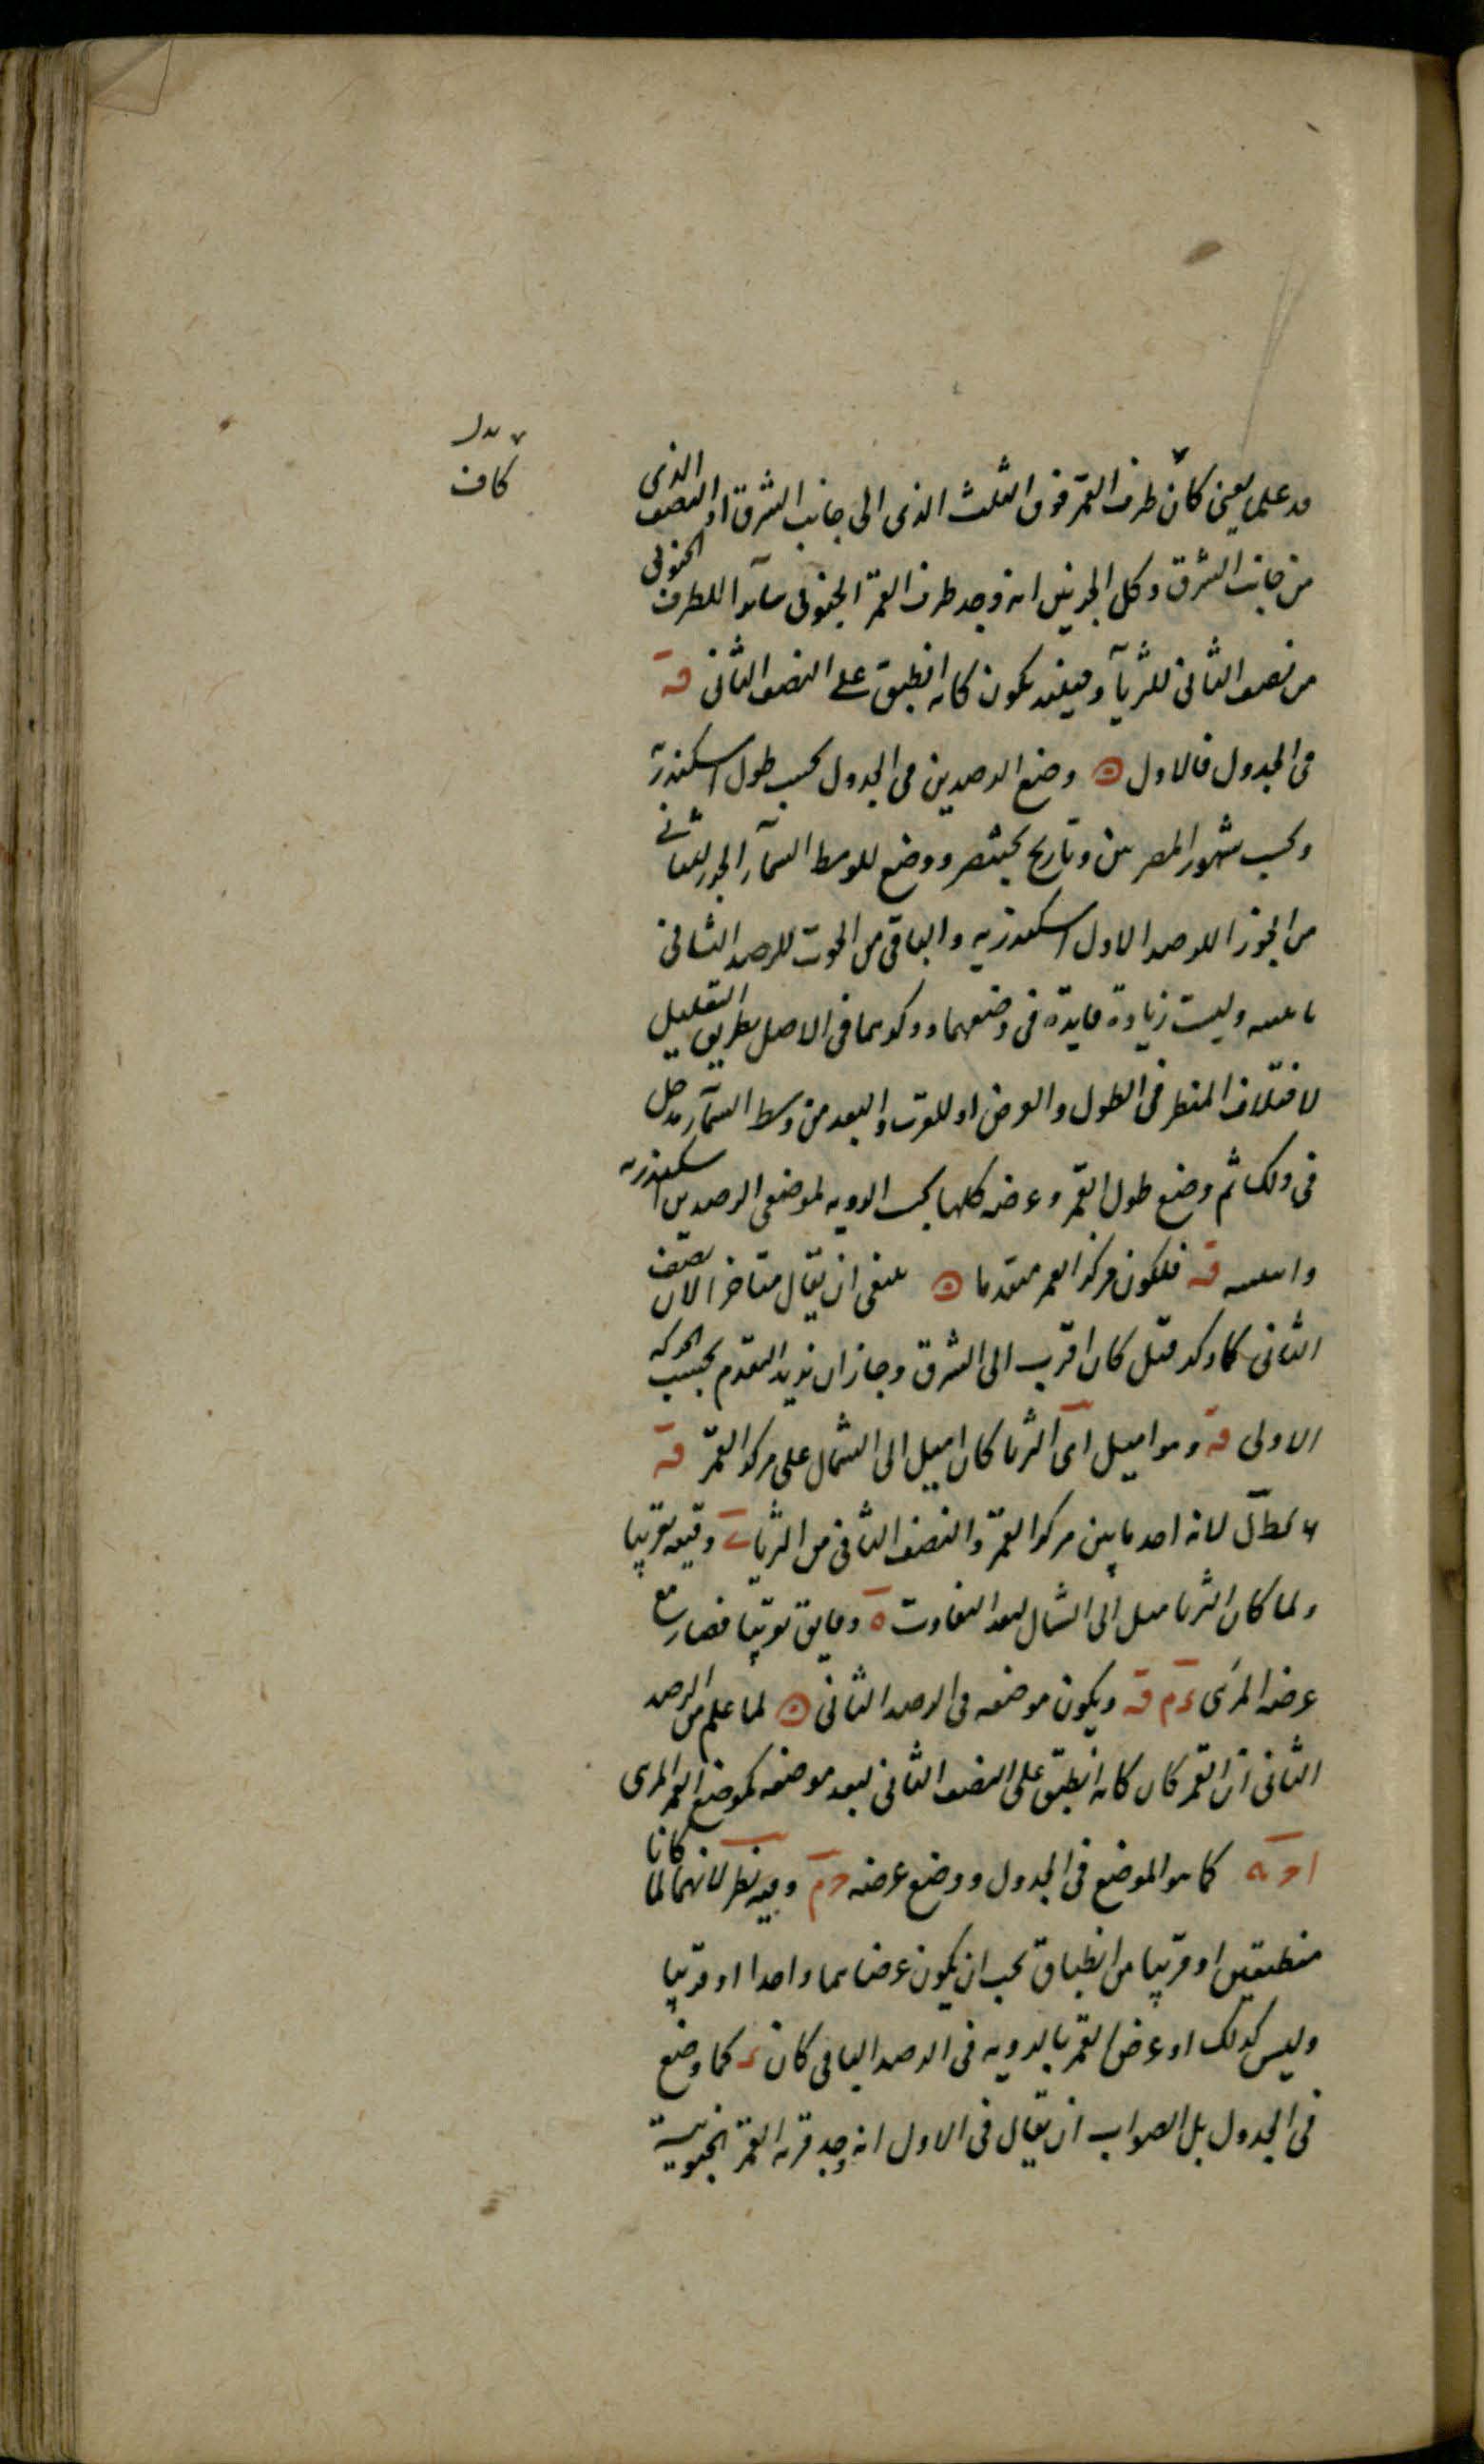 بدل
كاف
قد علم يعنى كان طرف القمر فوق الثلث الذى الى جانب الشرق او النصف الذى
من جانب الشرق وكل الجزئين انه وجد طرف القمر الجنوبى مماسا للطرف الجنوبى
من نصف الثانى للثريا وحينئذ يكون كانه انطبق على النصف الثانى قه
فى الجدول فالاول ۞ وضع الرصدين فى الجدول بحسب طول اسكندرية
وبحسب شهور المصريين وتاريخ بختنصر ووضع للوسط السماء الجزء الثانى
من الجوزا للرصد الاول اسكندريه والباقى من الحوت للرصد الثانى
وليست زيادة فايدة فى وضعهما وذكرهما فى الاصل بطريق التعليل
لاختلاف المنظر فى الطول والعرض اذ للوقت والبعد من وسط السماء مدخل
فى ذلك ثم وضع طول القمر وعرضه كلها بحسب الرويه لموضعى الرصدين اسكندريه
قه فلكون مركز القمر متقدما ۞ ينبغى ان يقال متاخرا لان نصف
الثانى كما ذكر قبل كان اقرب الى الشرق وجاز ان يريد التقدم بحسب الحركه
الاولى قه وهو اميل اى الثريا كان اميل الى الشمال على مركز القمر قه
لانه اخذ ما بين مركز القمر والنصف الثانى من الثريا دقيقه تقريبا
ولما كان الثريا ميل الى الشمال لبعد التفاوت ه دقايق تقريبا فصار مع
عرضه المرئى ء م قه ويكون موضعه فى الرصد الثانى ۞ لما علم من الرصد
الثانى ان القمر كان كانه انطبق على النصف الثانى لبعد موضعه كموضع القمر المرى
كما هو الموضع فى الجدول ووضع عرضه ح م وفيه نظر لانهما لما كانا
منطبقين او قريبا من انطباق يجب ان يكون عرضاهما واحدا او قريبا
وليس كذلك اذ عرض القمر بالرويه فى الرصد الباقى كان ء كما وضع
فى الجدول بل الصواب ان يقال فى الاول انه وجد قرنه القمر الجنوبية